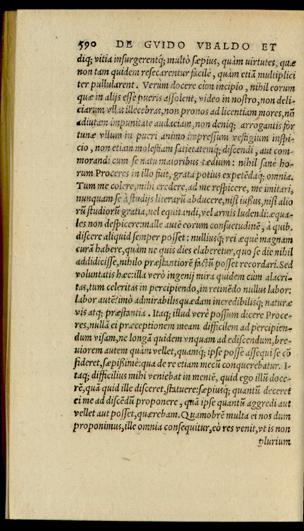 590 DE GVIDO VBALDO ET
diq; vitia insurgerentq́; multò sæpius, quàm uirtutes, quæ
non tam quidem resecarentur facilè, quàm etiã multiplici
ter pullularent. Verum docere cùm incipio, nihil eorum
quæ in alijs esse pueris assolent, video in nostro, non deli-
ciarum vllas illecebras, non pronos ad licentiam mores, nõ
adiutam impunitate audaciam, non deniq; arrogantis for
tunæ vllum in pueri animo impressum vestigium inspi-
cio, non etiam molestiam satietatemq́; discendi, aut com-
morandi cum se natu maioribus tædium: nihil sanè ho-
rum Proceres in illo fuit, grata potius expetẽdaq́; omnia.
Tum me colere, mihi credere, ad me respicere, me imitari,
nunquam se à studijs literarũ abducere, nisi iussus, nisi alio
rũ studiorũ gratia, uel equitandi, vel armis ludendi: æqua-
les non despicere: malle autẽ eorum consuetudinẽ, à quib.
discere aliquid semper posset: nulliusq́; rei æque magnam
curã habere, quàm ne quis dies elaberetur, quo se die nihil
addidicisse, nihilo præstantiorẽ factũ posset recordari. Sed
voluntatis hæc: illa verò ingenij mira quidem cùm alacri-
tas, tum celeritas in percipiendo, in retinẽdo nullus labor:
labor autẽ? imò admirabilis quædam incredibilisq́; naturæ
vis atq; præstantia. Itaq; illud verè possum dicere Proce-
res, nullã ei præceptionem meam difficilem ad percipien-
dum visam, ne longã quidem vnquam ad ediscendum, bre-
uiorem autem quàm vellet, quamq́; ipse posse assequi se cõ
fideret, sæpißimè: qua de re etiam mecũ conquerebatur. I-
taq; difficilius mihi veniebat in mentẽ, quid ego illũ doce-
rẽ, quã quid ille disceret, statuere: sæpiusq́; quantũ deceret
ei me ad discẽdũ proponere, quã ipse quantũ aggredi aut
vellet aut posset, quærebam. Quamobrẽ multa ei nos dum
proponimus, ille omnia consequitur, eò res venit, vt is non
plurium